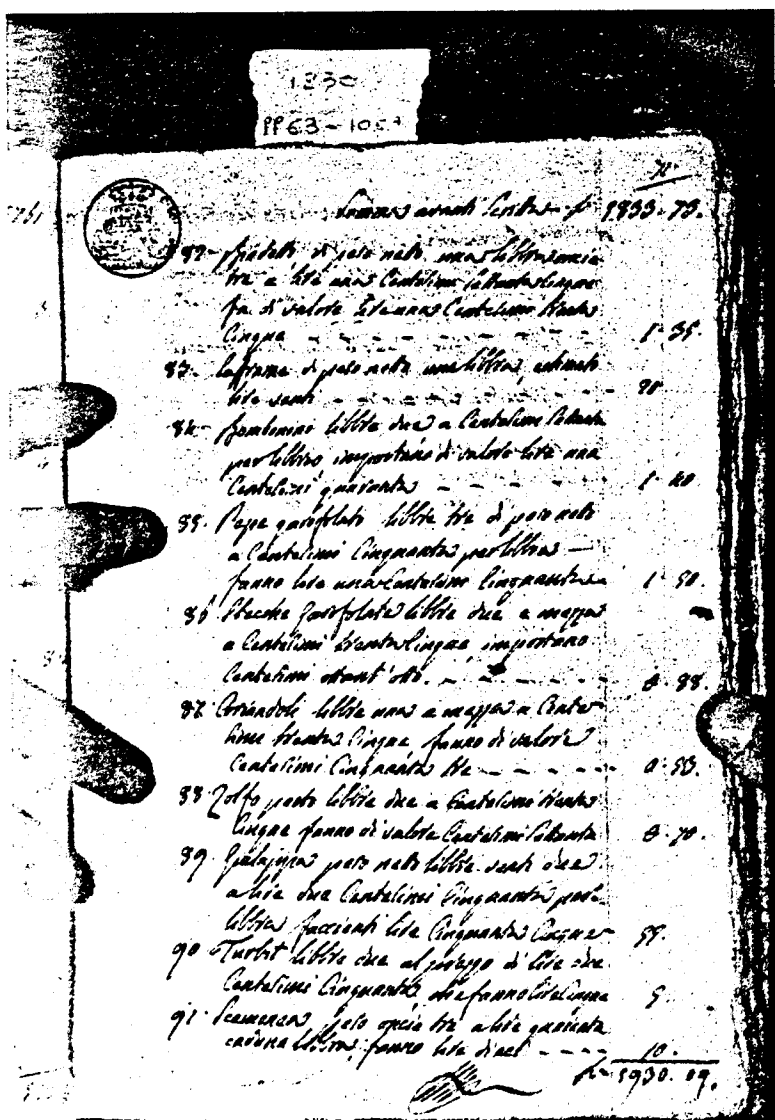 1830
PP 63 - 100
Somma avanti scritta £ 1833.73.
82. di peso netto una libbra oncie
tre a lire una Centesimi
di valore Lire una Centesimi trenta
Cinque - - - 1. 35.
83. di peso netto una libbra, estimata
lire venti - - - 20
84. libbre due a Centesimi settanta
per libbra importano di valore lire una
Centesimi quaranta - - - 1. 40
85. Pepe garofolato libbre tre di peso netto
a Centesimi Cinquanta per libbra —
fanno lire una Centesimi Cinquanta 1. 50.
86. garofolate libbre due e mezza
a Centesimi trenta Cinque importano
Centesimi ottant'otto. - - - 0. 88.
87. Coriandoli libbre una e mezza a Cente-
simi trenta Cinque fanno di valore
Centesimi Cinquanta tre - - - 0. 53.
88. Zolfo pesto libbre due a Centesimi trenta
Cinque fanno di valore Centesimi Settanta 0. 70.
89. peso netto libbre venti due
a lire due Centesimi Cinquanta per
libbra facienti lire Cinquanta Cinque 55.
90. Turbit libbre due al prezzo di lire due
Centesimi Cinquanta che fanno lire Cinque 5.
91. peso oncie tre a lire quaranta
caduna libbra, fanno lire dieci - - - 10.
£ 1930. 09.